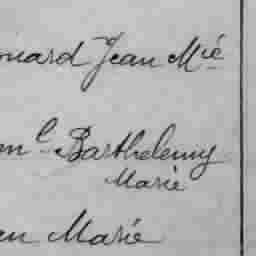 ouard Jean Mié
m l Barthelemy
Marie
an Marie